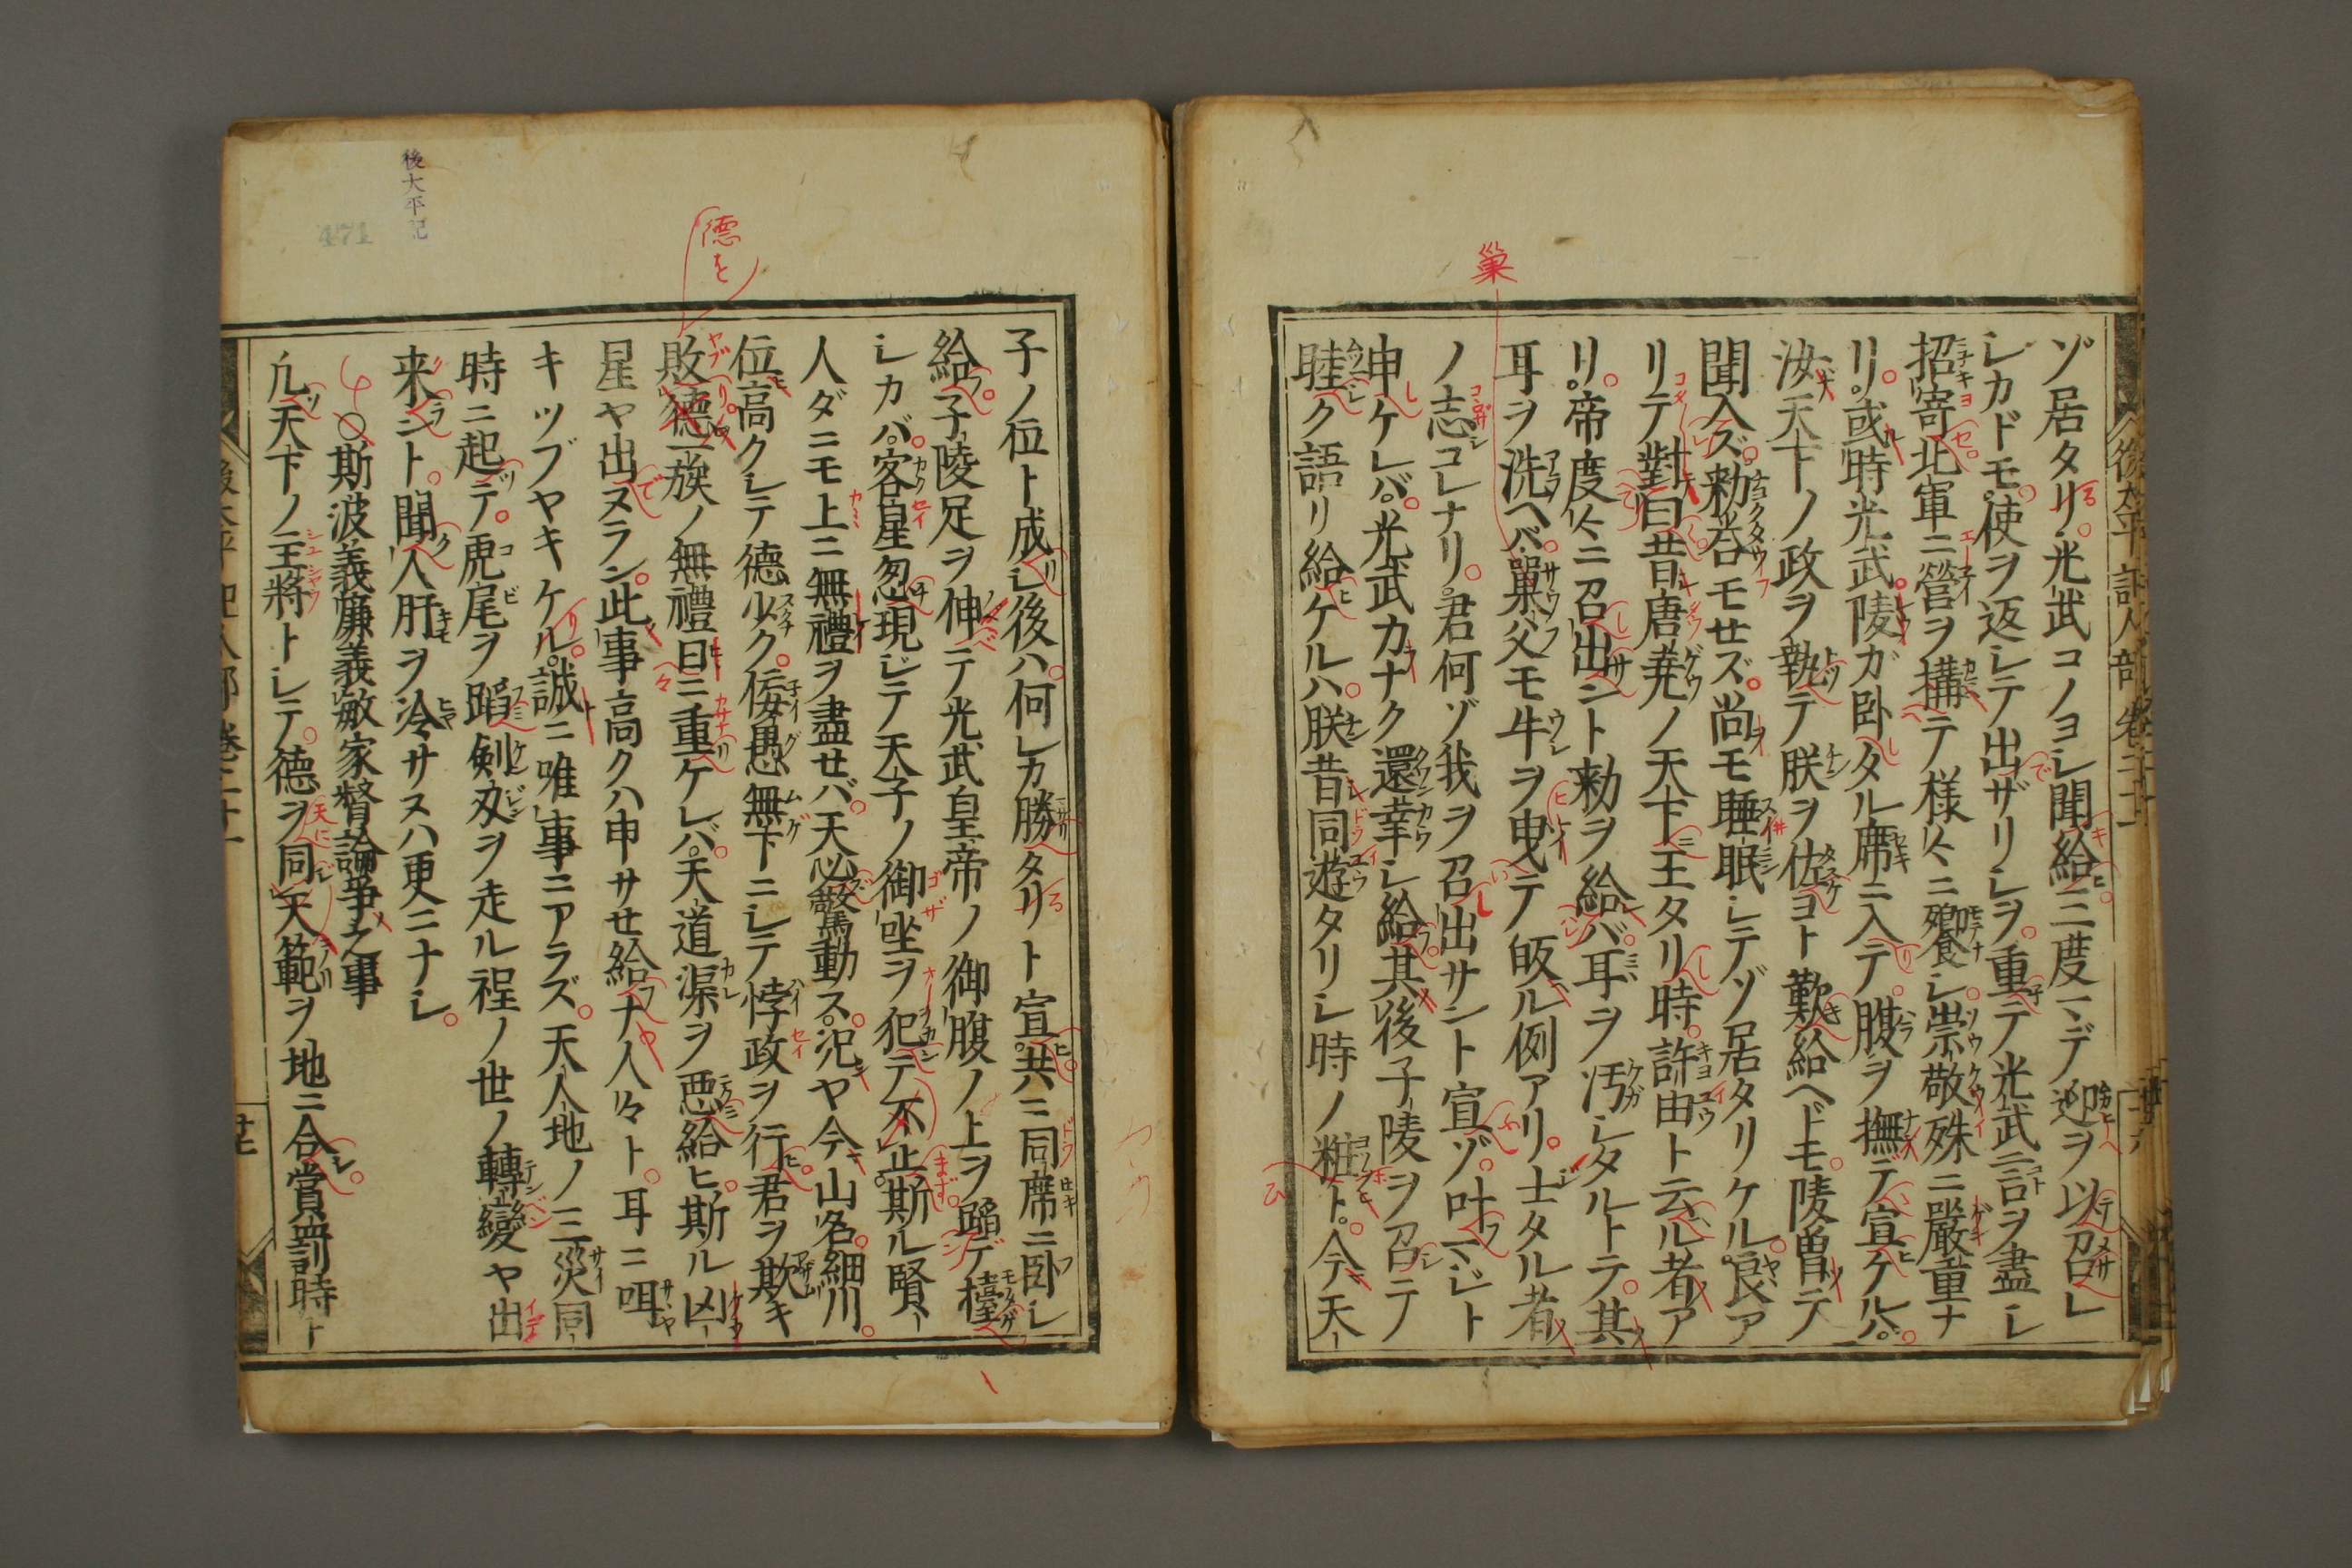 ゾ居タリ。光武コノヨシ聞給ヒ三度マデ迎ヲ以召シ
シカドモ。使ヲ返シテ出ザリシヲ。重テ光武言ヲ盡シ
招寄北軍ニ營ヲ構テ様々ニ饗シ。崇敬殊ニ嚴重ナ
リ。或時光武。陵ガ卧タル席ニ入テ。腹ヲ撫デ宣ケルハ。
汝天下ノ政ヲ執テ朕ヲ佐ヨト歎給ヘドモ。陵曽テ
聞入ズ。勅答モセズ。尚モ睡眠シテゾ居タリケル。良ア
リテ對曰。昔唐堯ノ天下ニ王タリシ時。許由ト云ル者ア
リ。帝度々ニ召出ント勅ヲ給ハバ。耳ヲ汚シタルトテ。其
耳ヲ洗ヘバ。巣父モ牛ヲ曳テ皈ル例アリ。士タル者
ノ志コレナリ。君何ゾ我ヲ召出サント宣ゾ。叶マジト
申ケレバ。光武力ナク還幸シ給。其後子陵ヲ召テ
睦ク語リ給ケルハ。朕昔同遊タリシ時ノ粧ト。今天
後太平記人部卷二十一
巣
子ノ位ト成シ後ハ。何レカ勝タリト宣。共ニ同席ニ卧シ
給。子陵足ヲ伸テ光武皇帝ノ御腹ノ上ヲ蹈デ擡
シカバ。客星忽現ジテ天子ノ御坐ヲ犯テ不止。斯ル賢
人ダニモ上ニ無禮ヲ盡セバ。天必驚動ス。况ヤ今山名。細川。
位高クシテ德少ク。佞愚無下ニシテ悖政ヲ行。君ヲ欺キ
敗德一族ノ無禮日ニ重ケレバ。天道渠ヲ悪給ヒ。斯ル凶
星ヤ出ヌラン。此事高クハ申サセ給ナ人々ト。耳ニ咡
キツブヤキケル。誠ニ唯事ニアラズ。天人地ノ三災同
時ニ起テ。虎尾ヲ蹈。剣刄ヲ走ル程ノ世ノ轉變ヤ出
来ント。聞人肝ヲ冷サヌハ更ニナシ。
○斯波義廉義敏家督論爭之事
凢天下ノ主將トシテ。德ヲ同天範ヲ地ニ合賞罰時ト
德を
後太平記
471